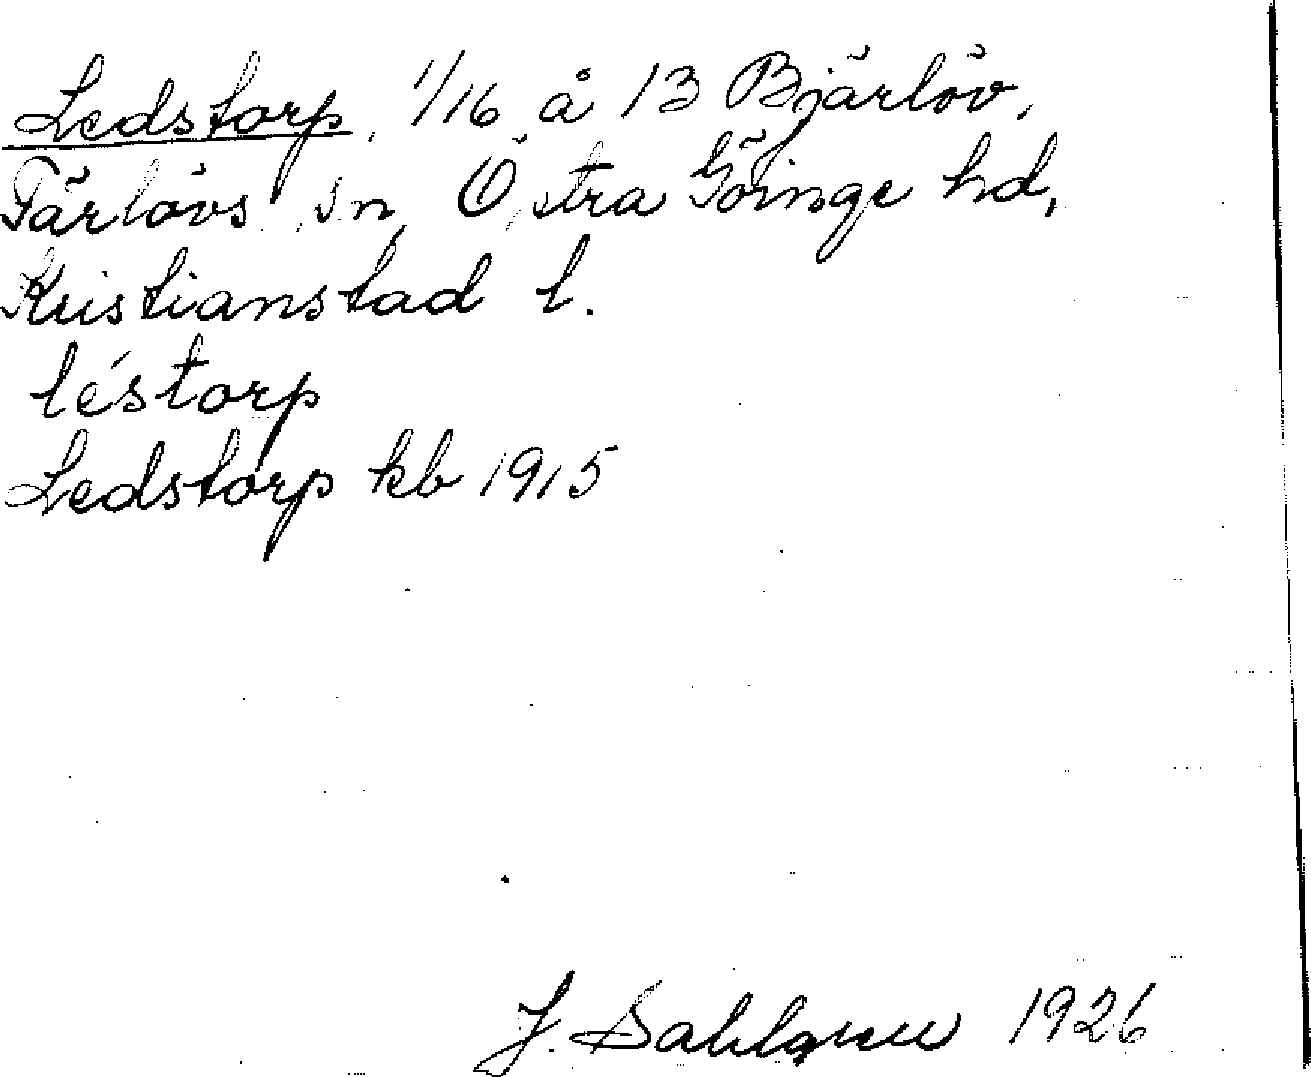 Ledstorp, 1/16 å 13 Bjärlöv,
Färlövs sn, Östra Göinge hd,
Kristianstad l.
léstorp
Ledstorp kb 1915
J. Sahlgren 1926